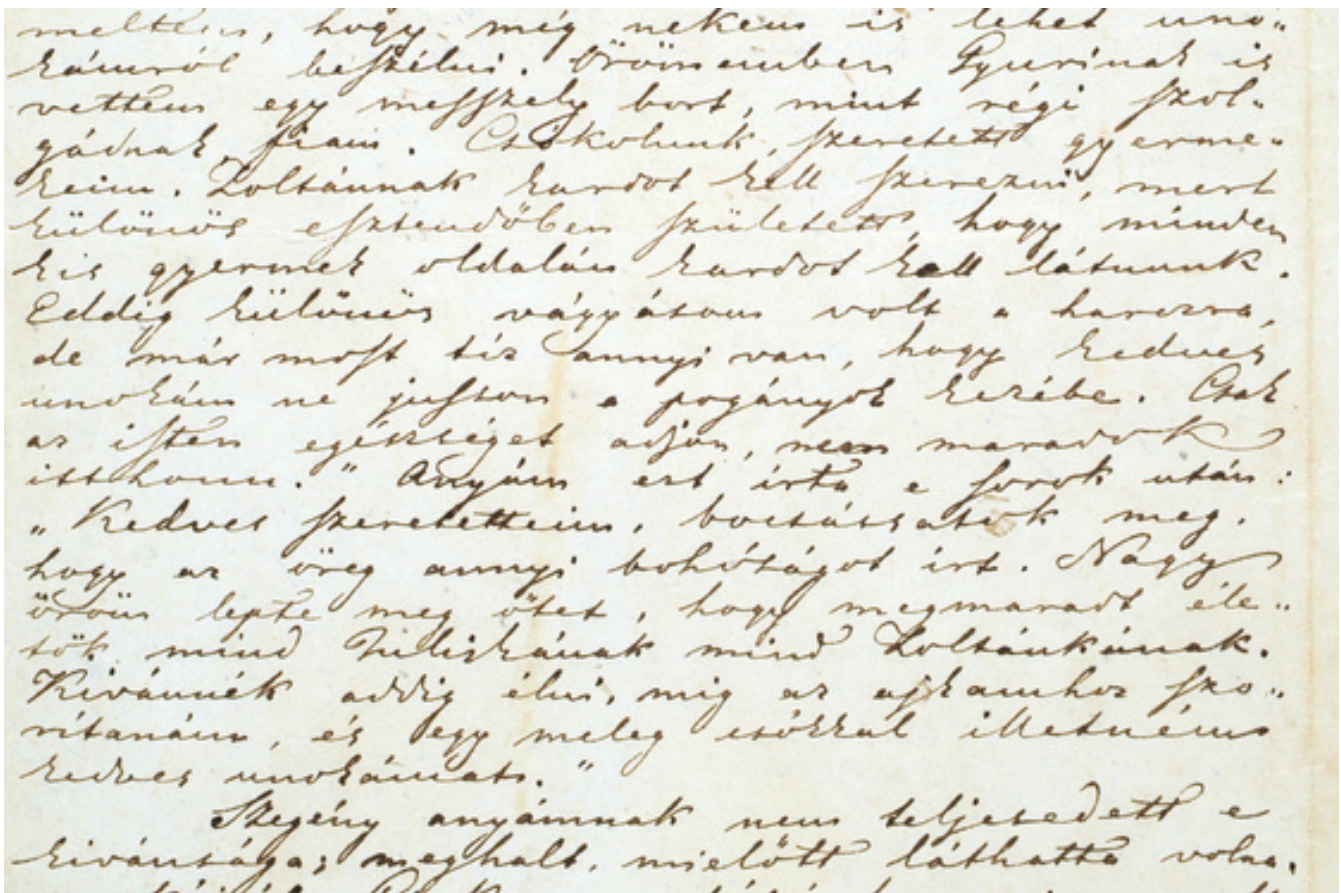 meltem, hogy még nekem is lehet uno„
kámról beszélni. Örömemben Gyurinak is
vettem egy messzely bort, mint régi szol„
gádnak, fiam. Csókolunk, szeretett gyerme„
keim. Zoltánnak kardot kell szerezni, mert
különös esztendőben született, hogy minden
kis gyermek oldalán kardot kell látnunk.
Eddig különös vágyásom volt a harczra,
de már most tíz annyi van, hogy kedves
unokám ne jusson a pogányok kezébe. Csak
az isten egészséget adjon, nem maradok
itthonn." Anyám ezt írta e sorok után:
„Kedves szeretetteim, bocsássatok meg,
hogy az öreg annyi bohóságot írt. Nagy
öröm lepte meg őtet, hogy megmaradt éle„
tök mind Juliskának mind Zoltánkának.
Kivánnék addig élni, mig az ajkamhoz szo„
rítanám, és egy meleg csókkal illetném
kedves unokámat."
Szegény anyámnak nem teljesedett e
kivánsága; meghalt, mielőtt láthatta volna.